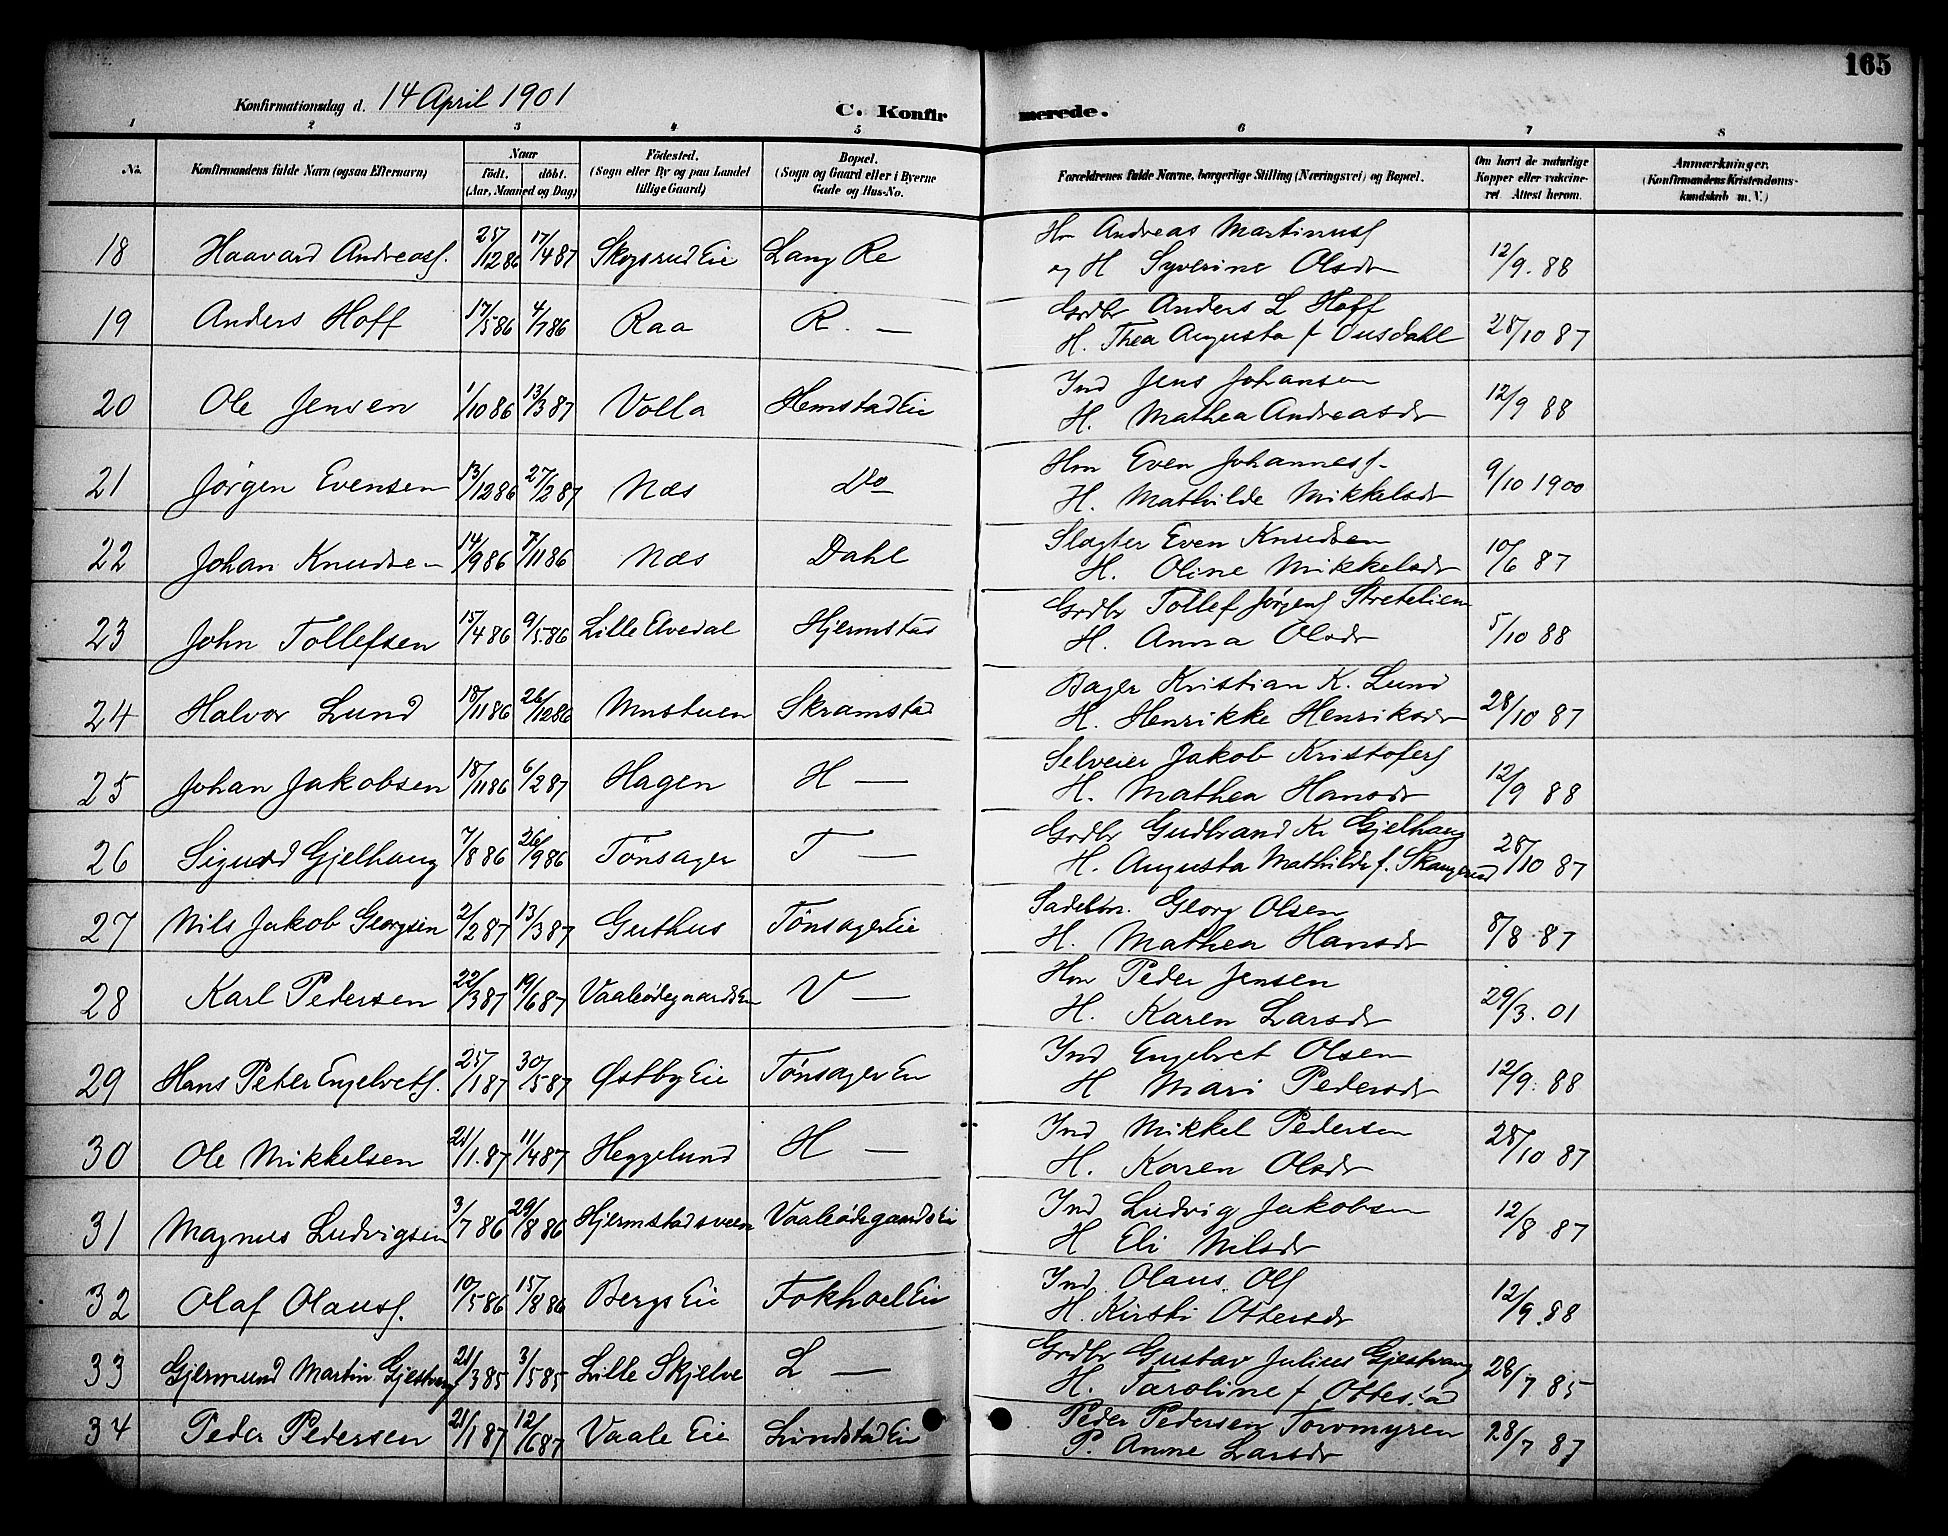 165
Konfirmationsdag d. 14 April 1901
C. Konfir merede.
1 2 3 4 5 6 7 8
No. | Konfirmandens fulde Navn (ogsaa Efternavn) | Naar født. døbt. (Aar, Maaned og Dag) | Fødested. (Sogn eller By og paa Landet tillige Gaard) | Bopæl. (Sogn og Gaard eller i Byerne Gade og Hus-No. | Forældrenes fulde Navne, borgerlige Stilling (Næringsvei) og Bopæl. | Om havt de naturlige Kopper eller vakcineret. Attest herom. | Anmærkninger. (Konfirmandens Kristendomskundskab m. V.)
18 Haavard Andreasf. 25/12 86 17/4 87 Skogsrud Eie Lang Re Hm Andreas Martinusf
og H Syverine Olsdr 12/9. 88
19 Anders Hoff 17/5 86 4/7 86 Raa R. — Grdbr Anders L Hoff
H. Thea Augusta f Ousdahl 28/10 87
20 Ole Jensen 1/10 86 13/3 87 Volla Hemstad Eie Ind Jens Johansen
H. Mathea Andreasdr 12/9 88
21 Jørgen Evensen 13/12 86 27/2 87 Næs Do Hm Even Johannesf.
H. Mathilde Mikkelsdr 9/10 1900
22 Johan Knudsen 14/9 86 7/11 86 Næs Dahl Slagter Even Knudsen
H. Oline Mikkelsdr 10/6 87
23 John Tollefsen 15/4 86 9/5 86 Lille Elvedal Hjermstad Grdbr Tollef Jørgenf Stretelien
H. Anna Olsdr 5/10 88
24 Halvor Lund 18/11 86 26/12 86 Mustuen Skramstad Bager Kristian K. Lund
H. Henrikke Henriksdr 28/10 87
25 Johan Jakobsen 18/11 86 6/2 87 Hagen H — Selveier Jakob Kristoferf
H. Mathea Hansdr 12/9 88
26 Sigurd Gjelhaug 7/8 86 26/9 86 Tønsager T — Grdbr Gudbrand Kr Gjelhaug
H. Augusta Mathilde f. Skaugerud 28/10 87
27 Nils Jakob Georgsen 2/2 87 13/3 87 Guthus Tønsager Eie Sadelm. Georg Olsen
H. Mathea Hansdr 8/8 87
28 Karl Pedersen 22/3 87 19/6 87 Vaaleødegaards Eie V — Hm Peder Jensen
H. Karen Larsdr 29/3. 01
29 Hans Peter Engelvetf. 25/1 87 30/5 87 Østby Eie Tønsager Eie Ind Engelvet Olsen
H Mari Pedersdr 12/9. 88
30 Ole Mikkelsen 21/1. 87 11/4 87 Heggelund H — Ind Mikkel Pedersen
H. Karen Olsdr 28/10 87
31 Magnus Ludvigsen 3/7 86 29/8 86 Hjermstadsveen Vaaleødegaards Eie Ind Ludvig Jakobsen
H Eli Nilsdr 12/8 87
32 Olaf Olausf. 10/5 86 15/8 86 Bergs Eie Fokhoel Eie Ind Olaus Olf
H. Kirsti Ottersdr 12/9 88
33 Gjermund Martin Gjestvang 21/3 85 3/5 85 Lille Skjelve L — Grdbr Gustav Julius Gjestvang
H. Taroline f Ottestad 28/7 85
34 Peder Pedersen 21/1 87 12/6 87 Vaale Eie Lindstad Eie Peder Pedersen Torvmyren
P. Anne Larsdr 28/7 87